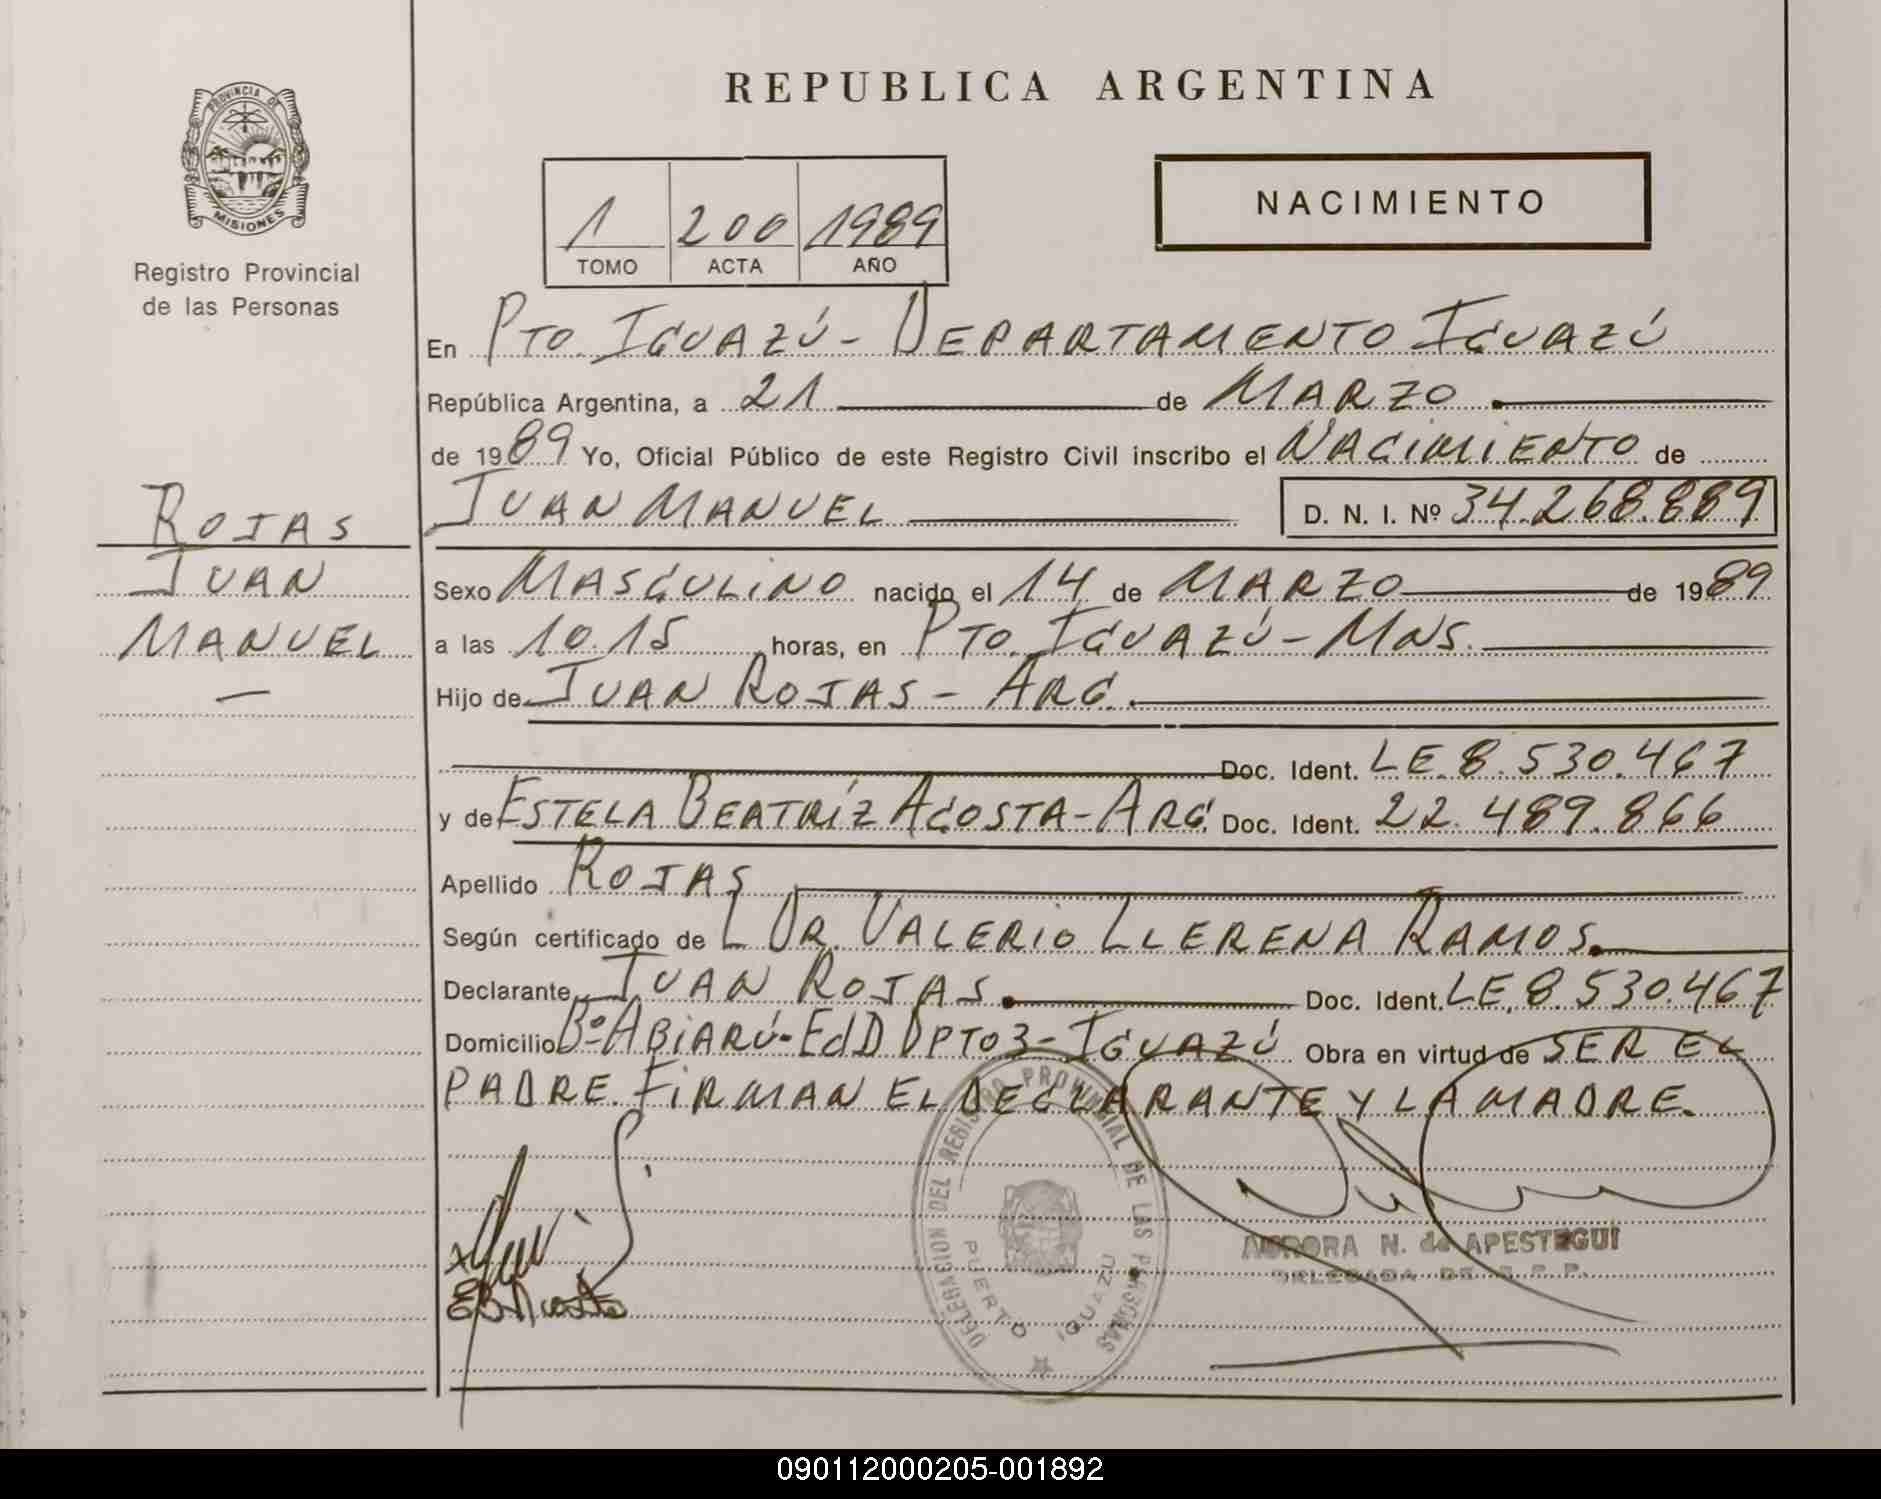 PROVINCIA DE
MISIONES
Registro Provincial
de las Personas
ROJAS
JUAN
MANUEL
—
REPUBLICA ARGENTINA
1 200 1989
TOMO ACTA AÑO
NACIMIENTO
En PTO. IGUAZÚ - DEPARTAMENTO IGUAZÚ
República Argentina, a 21 de MARZO
de 1989 Yo, Oficial Público de este Registro Civil inscribo el NACIMIENTO de
JUAN MANUEL D. N. I. Nº 34.268.889
Sexo MASCULINO nacido el 14 de MARZO de 1989
a las 10.15 horas, en PTO. IGUAZÚ - MNS.
Hijo de JUAN ROJAS - ARG.
Doc. Ident. LE. 8.530.467
y de ESTELA BEATRÍZ ACOSTA - ARG. Doc. Ident. 22.489.866
Apellido ROJAS
Según certificado de L DR. VALERIO LLERENA RAMOS.
Declarante JUAN ROJAS. Doc. Ident. LE. 8.530.467
Domicilio Bº ABIARÚ - Ed D DPTO 3 - IGUAZÚ Obra en virtud de SER EL
PADRE. FIRMAN EL DECLARANTE Y LA MADRE.
DELEGACION DEL REGISTRO PROVINCIAL DE LAS PERSONAS
PUERTO IGUAZU
AURORA N. de APESTEGUI
DELEGADA DE R.P.P.
EBAcosta
090112000205-001892